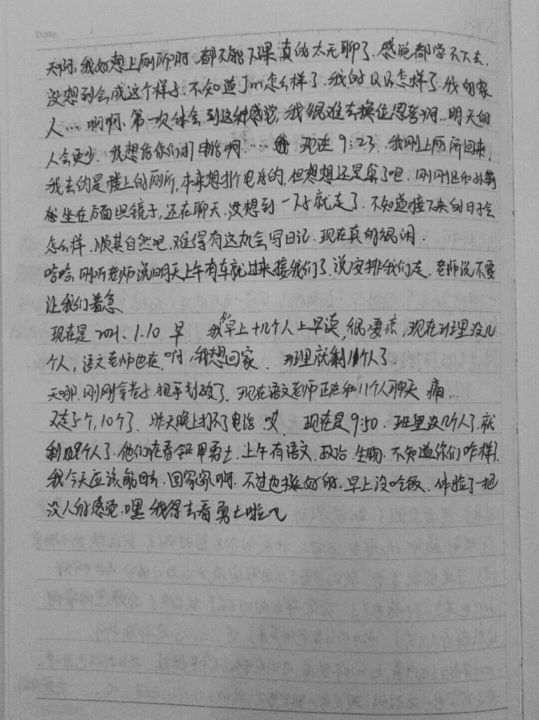 Date
天啊,我好想上厕所啊 都不能 结果真的太无聊了,感觉都学不下去,
没想到会成这个样子,不知道Jm怎么样了,我的QQ怎样了,我的家
人…啊啊,第一次体会到这种感觉,我很难去换位思考啊…明天的
人会更少,我想给你们打电话啊…… 现在9:23,我刚上厕所回来,
我去的是楼上的厕所,本来想打电话的,但想想还是算了吧,刚刚还和
坐在后面照镜子,还在聊天,没想到一下子就走了,不知道接下来的日子会
怎么样,顺其自然吧,难得有这机会写日记,现在真的很闲.
哈哈,刚听老师说明天上午有车就过来接我们了,说安排我们走,老师说不要
让我们着急
现在是2021.1.10 早 我早上十几个人上早读,很凄凉,现在班里没几
个人,语文老师也在,啊,我想回家 班里就剩11个人了
天哪,刚刚拿卷子把手划破了,现在语文老师正在和11个人聊天 痛..
又走了个,10个了,昨天晚上打不了电话 哎 现在是9:50,班里没几个人了,就
剩 9个人了,他们在看铠甲勇士,上午有语文,政治,生物,不知道你们咋样,
我今天应该能回去,回家家啊,不过也挺好的,早上没吃饭,体验了一把
没人的感觉,嘿 我得去看勇士啦~